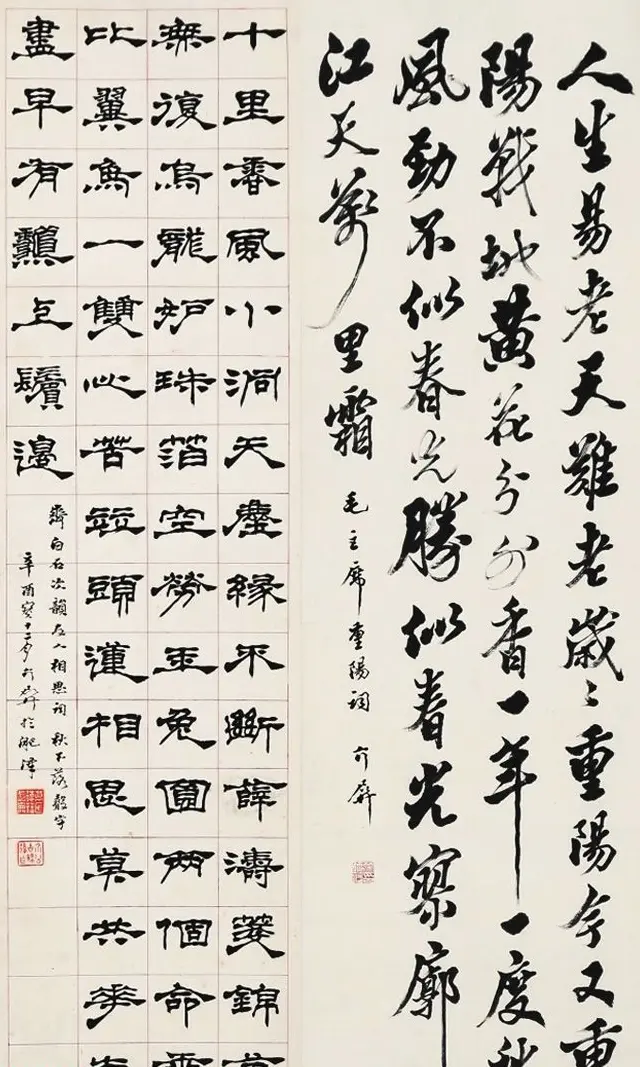 人生易老天難老歲〻重陽今又重
陽戰地黃花分外香一年一度秋
風勁不似春光勝似春光寥廓
江天萬里霜
毛主席重陽詞 介屏
十里香風小洞天塵緣不斷薛濤箋錦
無復烏龍妒珠箔空勞玉兔圓兩個命乖
比翼鳥一雙心苦竝頭蓮相思莫共花
盡早有上鬢邊
齊白石次韻友人相思詞 秋下落字
辛酉冬十二月介屏於肥津